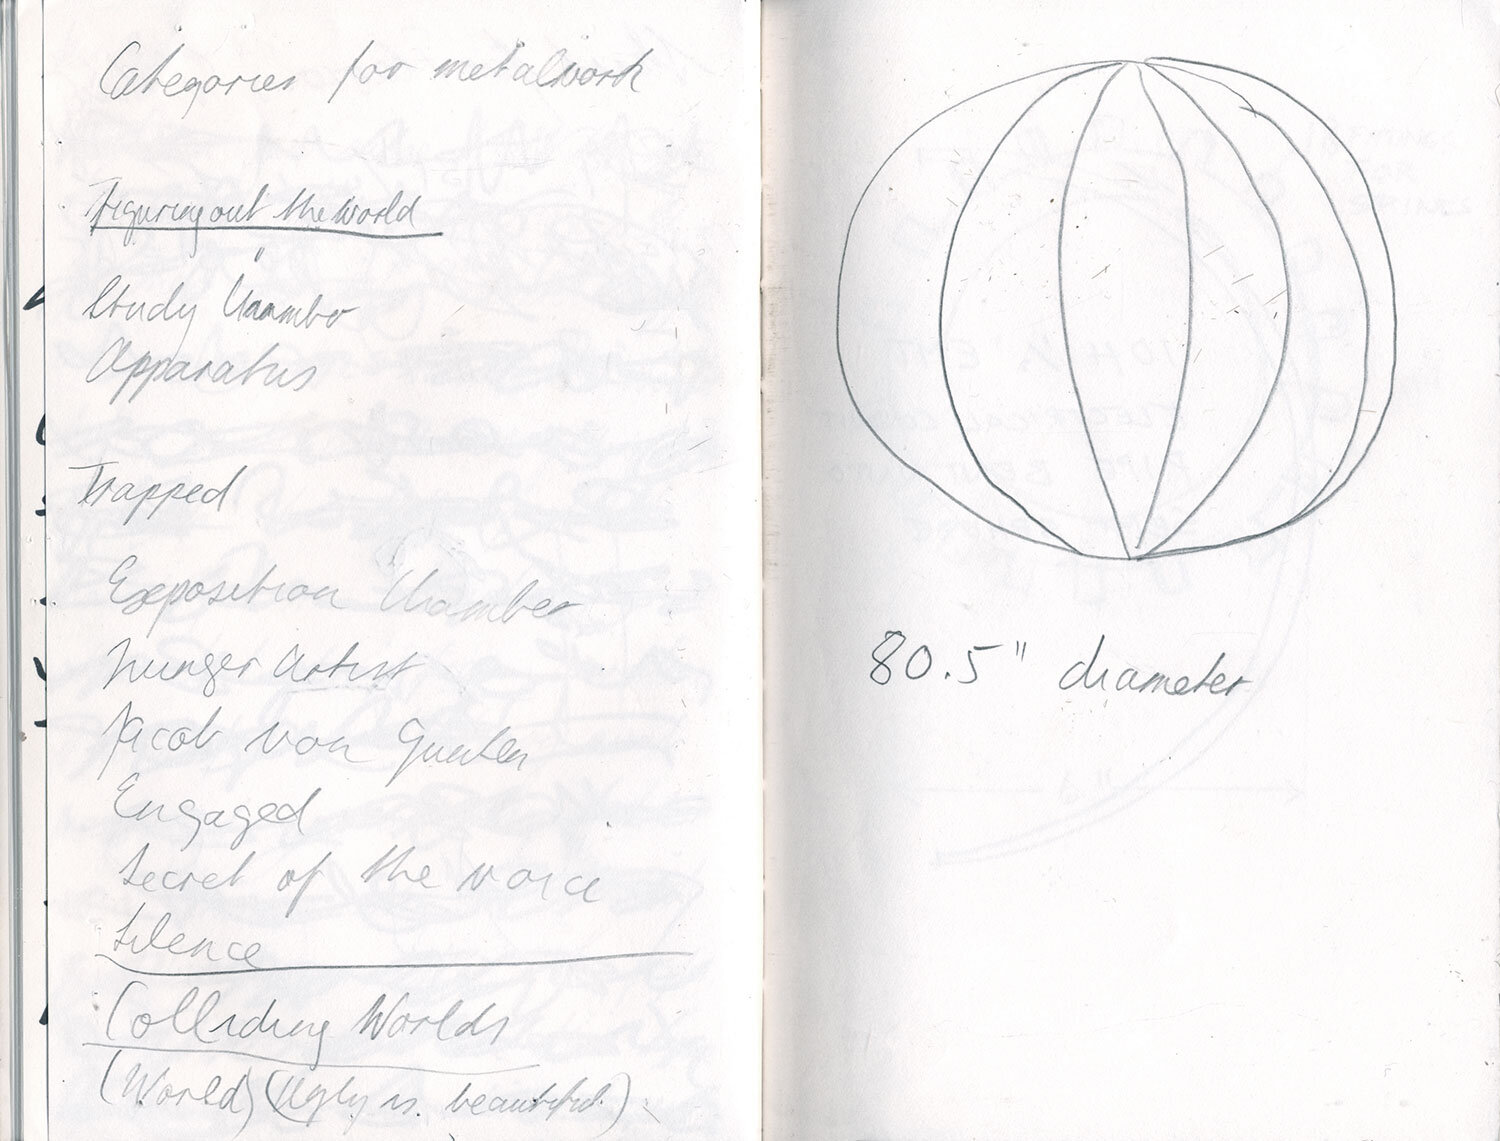 Categories for metalwork
Figuring out the world
"
Study
Apparatus
Trapped
Exposition Chamber
Hunger Artist
Jacob von
Engaged
Secret of the voice
Silence
Colliding Worlds
(World) (Ugly is beautiful)
80.5" diameter